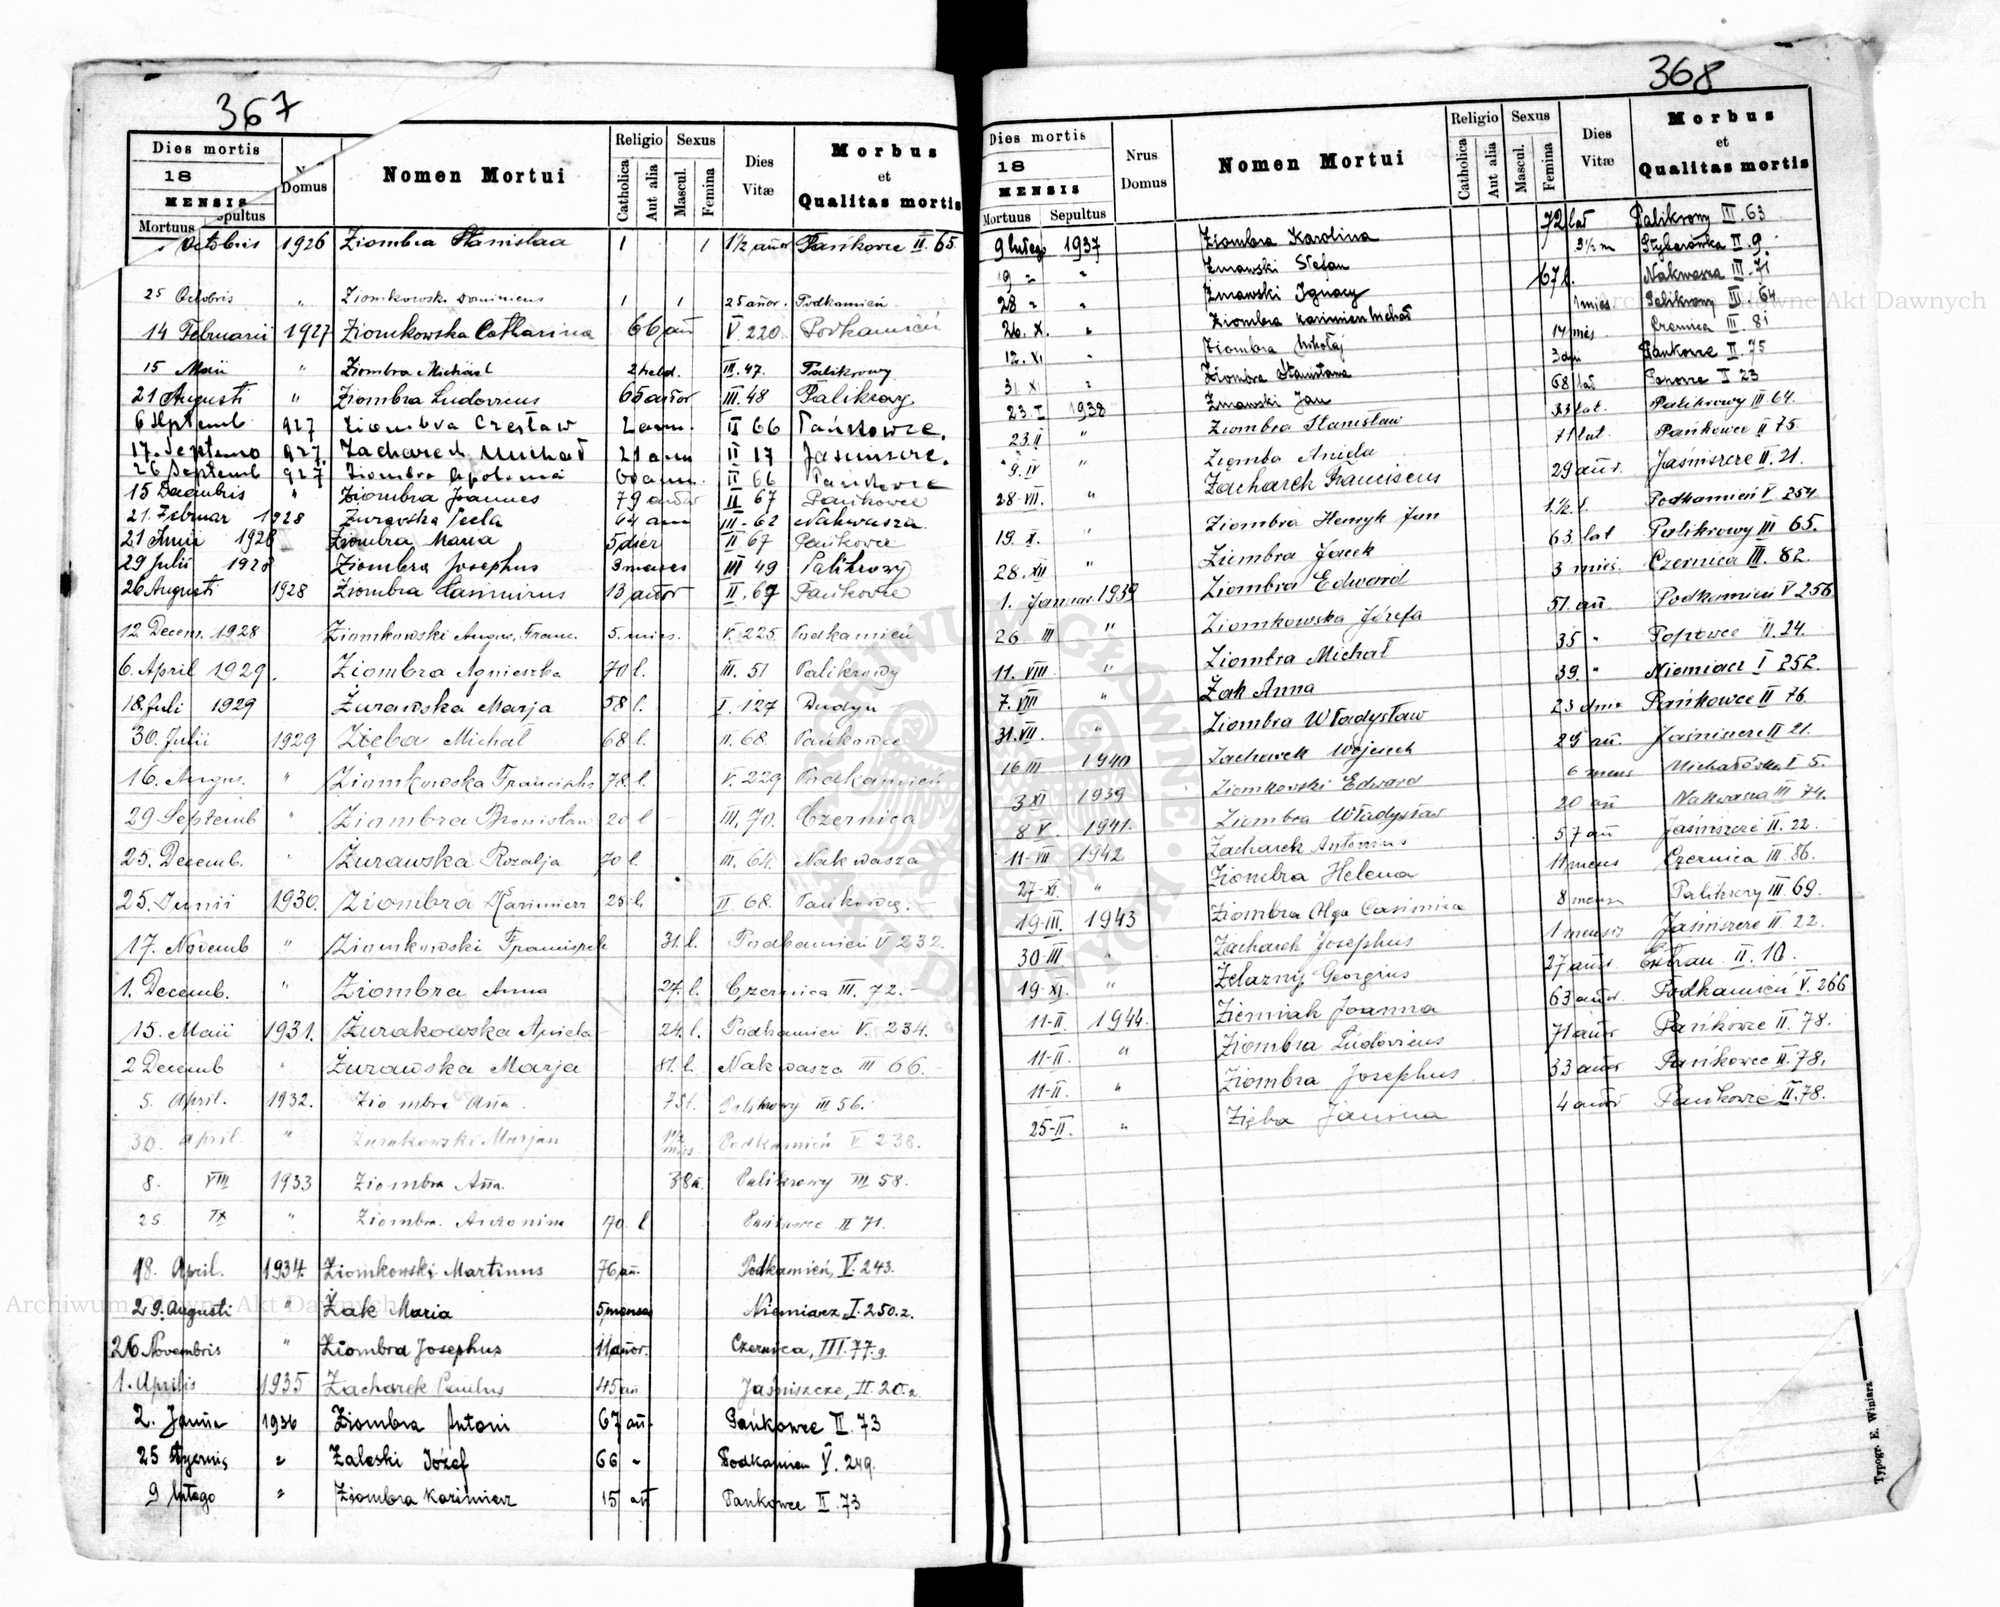 367
Dies mortis
18
MENSIS
Mortuus Sepultus
Domus
Nomen Mortui
Religio
Catholica
Aut alia
Sexus
Mascul.
Femina
Dies Vitæ
Morbus
et
Qualitas mortis
Octobris 1926 Ziombra Stanislaa 1 1 1½ añor Pańkowce II. 65.
25 Octobris " Ziomkowski Dominicus 1 1 25 añor. Podkamień
14 Februarii 1927 Ziomkowska Catharina 66 añ V 220. Podkamień
15 Maii " Ziombra Michael III. 47. Palikrowy
21 Augusti " Ziombra Ludovicus 65 añor III. 48 Palikrowy
6 Septemb 927 Ziombra Czesław 2 ann. II 66 Pańkowce.
17. Septemb 927. Zacharek Michał 21 ann II 17 Jasniszcze.
26 Septemb 927. Ziombra Apolonia II 66 Pańkowce
15 Decembris " Ziombra Joannes 79 añor II 67 Pańkowce
21. Februar 1928 Żurawska Tecla 64 ann III - 62 Nakwasza
21 Junii 1928 Ziombra Maria 5 dier II. 67 Pańkowce
29 Julii 1928 Ziombra Josephus 3 menses III 49 Palikrowy
26 Augusti 1928 Ziombra Casimirus 13 añor II. 67 Pańkowce
12. Decem. 1928 Ziomkowski Augus. Franc. 5. mies. V. 225. Podkamień
6. April 1929. Ziombra Agnieszka 70 l. III. 51 Palikrowy
18. Juli 1929 Żurawska Marja 58 l. I. 127 Dudyn
30. Julii 1929 Zięba Michał 68 l. II. 68. Pańkowce
16. Augus. " Ziomkowska Francisks 78. l. V. 229 Podkamień
29 Septemb " Ziombra Bronisław 20 l III. 70. Czernica
25. Decemb. " Żurawska Rozalja 70 l. III. 64. Nakwasza
25. Junii 1930. Ziombra Kazimierz 25 l. II. 68. Pańkowce.
17. Novemb " Ziomkowski Franciszek 31. l. Podkamień V 232.
1. Decemb. " Ziombra Anna 27. l. Czernica III. 72.
15. Maii 1931. Żurakowska Aniela 24. l. Podkamień V. 234.
2 Decemb " Żurawska Marja 81. l. Nakwasza III 66.
5. April. 1932. Ziombra Aña. 75 l. Palikrowy III 56.
30. April. " Żurakowski Marjan Podkamień V. 238.
8. VIII 1933 Ziombra Aña. 38 a. Palikrowy III 58.
25. IX " Ziombra. Antonina 70. l Pańkowce II 71.
18. April. 1934. Ziomkowski Martinus 76 añ. Podkamień, V. 243.
29. Augusti " Żak Maria 5 menses Niemiacz, I. 250.
26 Novembris " Ziombra Josephus 11 añor. Czernica, III. 77.
1. Aprilis 1935 Zacharek Paulus 45 añ Jaśniszcze, II. 20.
2. 1936 Ziombra Antoni 67 añ. Pańkowce II. 73
25 " Zaleski Józef 66 " Podkamień V. 249.
9 lutego " Ziombra Kazimierz 15 Pankowce II. 73
368
Dies mortis
18
MENSIS
Mortuus Sepultus
Nrus Domus
Nomen Mortui
Religio
Catholica
Aut alia
Sexus
Mascul.
Femina
Dies Vitæ
Morbus
et
Qualitas mortis
9 lutego 1937 Ziombra Karolina 72 lat Palikrowy III 63
9 " " Żmawski Stefan 3½ m Styberówka II. 9
28 " " Żmawski Ignacy 67 l. Nakwasza III. 71
26. X. " Ziombra Kazimierz Michał 1 mies. Palikrowy III. 64
12. XI " Ziombra Mikołaj 14 mies Czernica III. 81
31. XI " Ziombra Stanisława 3 dni Pańkowce II. 75
23. I 1938 Żmawski Jan 68 lat Popowce I 23
23. II " Ziombra Stanisław 33 lat. Palikrowy III 64.
9. IV " Ziomba Aniela 71 lat. Pańkowce II 75.
28. VII. " Zacharek Franciscus 29 añor. Jaśniszcze II. 21.
19. X. " Ziombra Henryk Jan 1.½. l. Podkamień V. 254
28. XII " Ziombra Jacek 63. lat Palikrowy III 65.
1. Januar. 1939 Ziombra Edward 3 mies. Czernica III. 82.
26 III " Ziomkowska Józefa 51. añ. Podkamień V 256
11. VIII " Ziombra Michał 35 " Popowce II. 24.
7. VIII " Żak Anna 39. " Niemiacz I 252.
31. VII. " Ziombra Władysław 23 dnie Pańkowce II 76.
16 III 1940 Zacharek Wojciech 29 añ. Jaśniszcze II 21.
3 XI 1939 Ziomkowski Edward 6 mens Michałówka I 5.
8 V. 1941. Ziombra Władysław 20 añ Nakwasza III 74.
11-VIII 1942 Zacharek Antonius 57 añ Jaśniszcze II. 22.
27-XI. " Ziombra Helena 11 mens Czernica III. 86.
19-III. 1943 Ziombra Olga Casimira 8 mens Palikrowy III 69.
30-III " Zacharek Josephus 1 mensis Jaśniszcze II. 22.
19-XI. " Żelazny Georgius 27 añor. II. 10.
11-II. 1944. Ziemiak Joanna 63 añor. Podkamień V. 266
11-II. " Ziombra Ludovicus 71 añor Pańkowce II. 78.
11-II. " Ziombra Josephus 33 añor Pańkowce II. 78.
25-II. " Zięba Janina 4 añor Pańkowce II. 78.
Typogr. E. Winiarz
Archiwum Główne Akt Dawnych
Archiwum Główne Akt Dawnych
ARCHIWUM GŁÓWNE AKT DAWNYCH